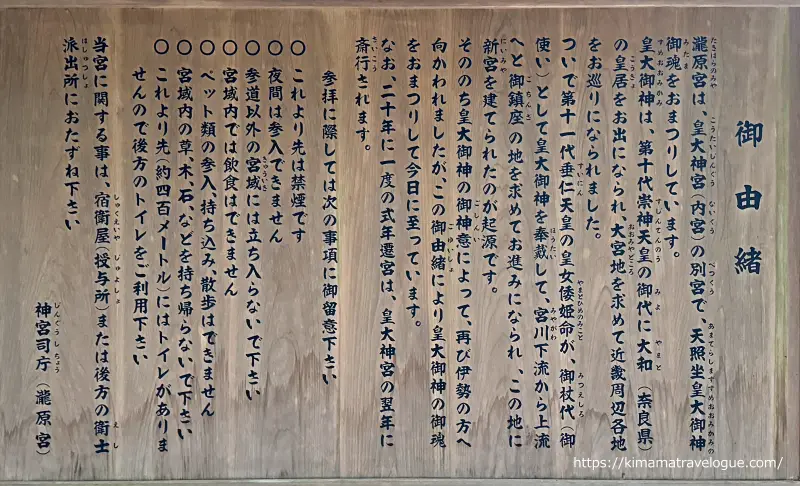 御由緒
瀧原宮は、皇大神宮(内宮)の別宮で、天照坐皇大御神
御魂をおまつりしています。
皇大御神は、第十代崇神天皇の御代に大和(奈良県)
の皇居をお出になられ、大宮地を求めて近畿周辺各地
をお巡りになられました。
ついで第十一代垂仁天皇の皇女倭姫命が、御杖代(御
使い)として皇大御神を奉戴して、宮川下流から上流
へと御鎮座の地を求めてお進みになられ、この地に
新宮を建てられたのが起源です。
そののち皇大御神の御神意によって、再び伊勢の方へ
向かわれましたが、この御由緒により皇大御神の御魂
をおまつりして今日に至っています。
なお、二十年に一度の式年遷宮は、皇大神宮の翌年に
斎行されます。
参拝に際しては次の事項に御留意下さい
○ これより先は禁煙です
○ 夜間は参入できません
○ 参道以外の宮域には立ち入らないで下さい
○ 宮域内では飲食はできません
○ ペット類の参入、持ち込み、散歩はできません
○ 宮域内の草、木、石、などを持ち帰らないで下さい
○ これより先(約四百メートル)にはトイレがありま
せんので後方のトイレをご利用下さい
当宮に関する事は、宿衛屋(授与所)または後方の衛士
派出所におたずね下さい
神宮司庁(瀧原宮)
https://kimamatravelogue.com/